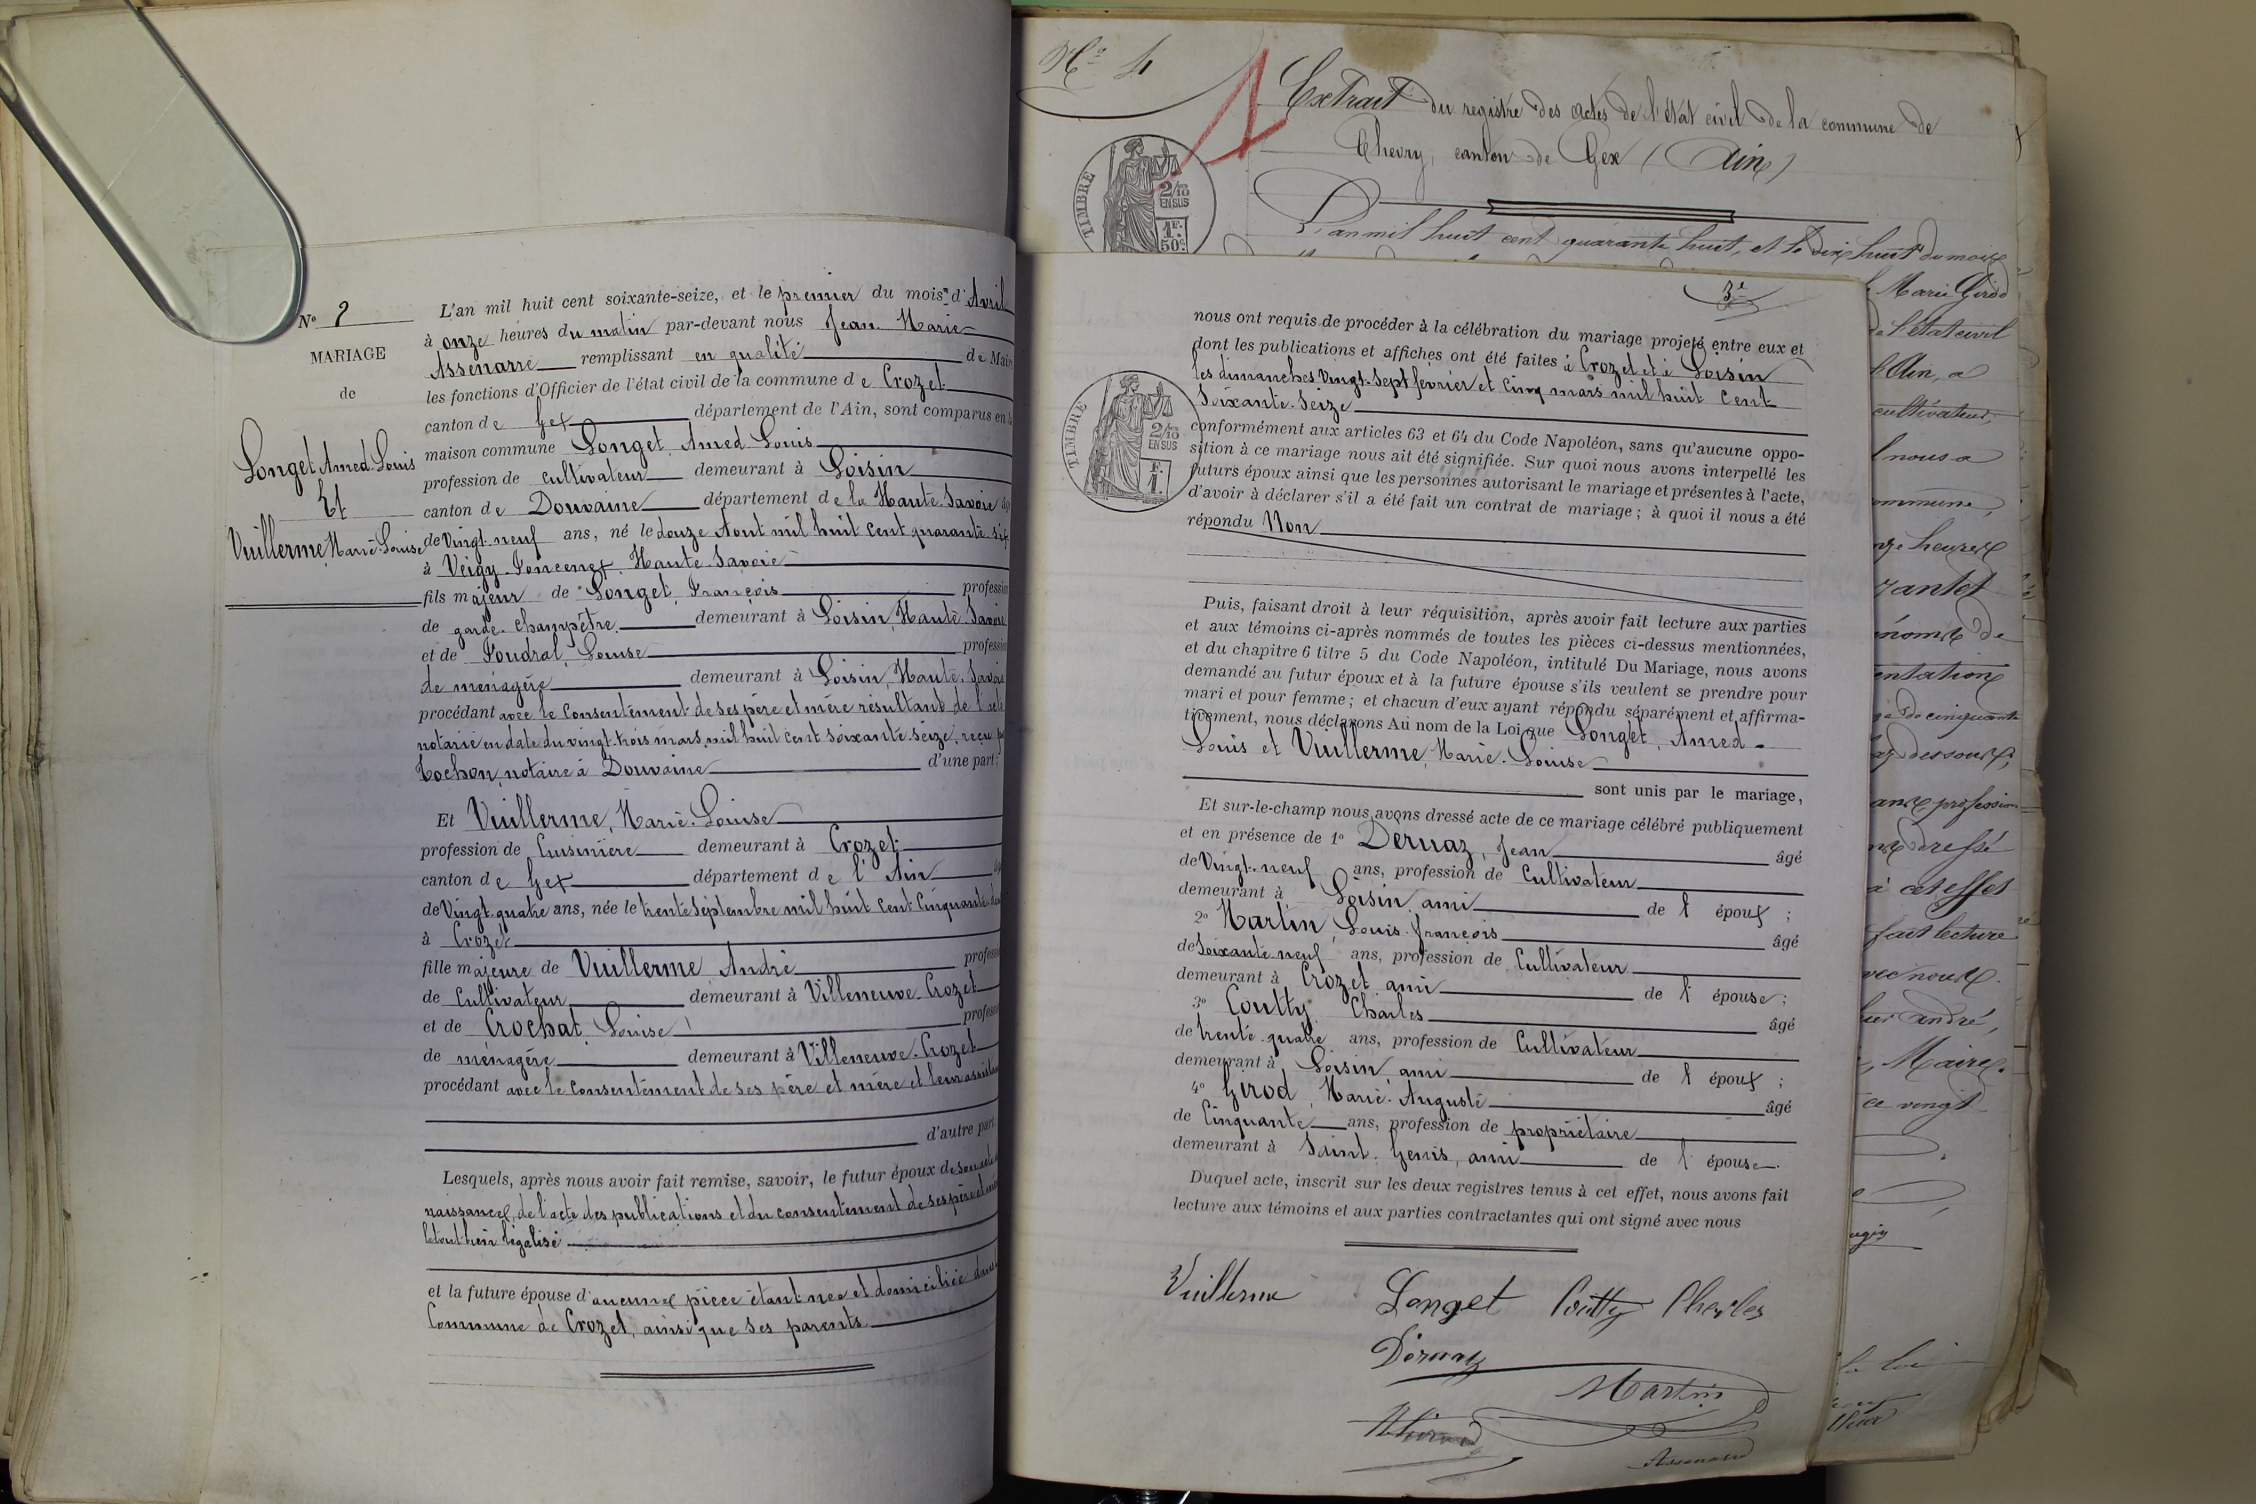 N° 2
MARIAGE
de
Longet Amed Louis
Et
Vuillerme, Marie-Louise
L'an mil huit cent soixante-seize, et le premier du mois d'Avril
à onze heures du matin par-devant nous Jean Marie
Assenarre remplissant en qualité de Mair
les fonctions d'Officier de l'état civil de la commune de Crozet
canton de Gex département de l'Ain, sont comparus en
maison commune Longet, Amed Louis
profession de cultivateur demeurant à Loisin
canton de Douvaine département de la Haute-Savoie
de vingt-neuf ans, né le douze Aout mil huit cent quarante-six
à Veigy-Foncenex, Haute-Savoie
fils majeur de Longet, François profession
de garde-champêtre demeurant à Loisin, Haute-Savoie
et de Foudral, Louise profession
de ménagère demeurant à Loisin, Haute-Savoie
procédant avec le consentement de ses père et mère résultant de l'acte
notarié en date du vingt-trois mars mil huit cent soixante-seize, reçu
Lochon, notaire à Douvaine d'une part;
Et Vuillerme, Marie-Louise
profession de Cuisinière demeurant à Crozet
canton de Gex département de l'Ain
de Vingt-quatre ans, née le trente Septembre mil huit cent cinquante
à Crozet
fille majeure de Vuillerme André profession
de Cultivateur demeurant à Villeneuve-Crozet
et de Crochat, Louise profession
de ménagère demeurant à Villeneuve-Crozet
procédant avec le consentement de ses père et mère et leur
d'autre part
Lesquels, après nous avoir fait remise, savoir, le futur époux de son acte
naissance, de l'acte des publications et du consentement de ses père et mère
le tout bien légalisé
et la future épouse d'aucune pièce étant née et domiciliée dans
Commune de Crozet, ainsi que ses parents
N° 4
1
Extrait du registre des actes de l'état civil de la commune de
Chevry, canton de Gex (Ain)
TIMBRE
2/10
EN SUS
1F.
50c.
L'an mil huit cent quarante huit, et le dix huit du mois
Marie Girod
de l'état civil
l'Ain, a
cultivateur,
nous a
commune,
heures
de
cinquante
dessous,
profession
dressé
à cet effet
fait lecture
avec nous.
andré,
Maire.
ce vingt
3e
nous ont requis de procéder à la célébration du mariage projeté entre eux et
dont les publications et affiches ont été faites à Crozet et à Loisin
les dimanches vingt-sept février et cinq mars mil huit cent
soixante-seize
TIMBRE
2/10
EN SUS
F.
1.
conformément aux articles 63 et 64 du Code Napoléon, sans qu'aucune oppo-
sition à ce mariage nous ait été signifiée. Sur quoi nous avons interpellé les
futurs époux ainsi que les personnes autorisant le mariage et présentes à l'acte,
d'avoir à déclarer s'il a été fait un contrat de mariage; à quoi il nous a été
répondu Non
Puis, faisant droit à leur réquisition, après avoir fait lecture aux parties
et aux témoins ci-après nommés de toutes les pièces ci-dessus mentionnées,
et du chapitre 6 titre 5 du Code Napoléon, intitulé Du Mariage, nous avons
demandé au futur époux et à la future épouse s'ils veulent se prendre pour
mari et pour femme; et chacun d'eux ayant répondu séparément et affirma-
tivement, nous déclarons Au nom de la Loi que Longet, Amed-
Louis et Vuillerme, Marie-Louise
sont unis par le mariage,
Et sur-le-champ nous avons dressé acte de ce mariage célébré publiquement
et en présence de 1° Deruaz, Jean âgé
de Vingt-neuf ans, profession de Cultivateur
demeurant à Loisin, ami de l'époux;
2° Martin, Louis-François âgé
de Soixante-neuf ans, profession de Cultivateur
demeurant à Crozet, ami de l'épouse;
3° Coutty, Charles âgé
de trente-quatre ans, profession de Cultivateur
demeurant à Loisin, ami de l'époux;
4° Girod, Marie-Auguste âgé
de Cinquante ans, profession de propriétaire
demeurant à Saint-Genis, ami de l'épouse.
Duquel acte, inscrit sur les deux registres tenus à cet effet, nous avons fait
lecture aux témoins et aux parties contractantes qui ont signé avec nous
Vuillerme Longet Coutty Charles
Deruaz
Martin